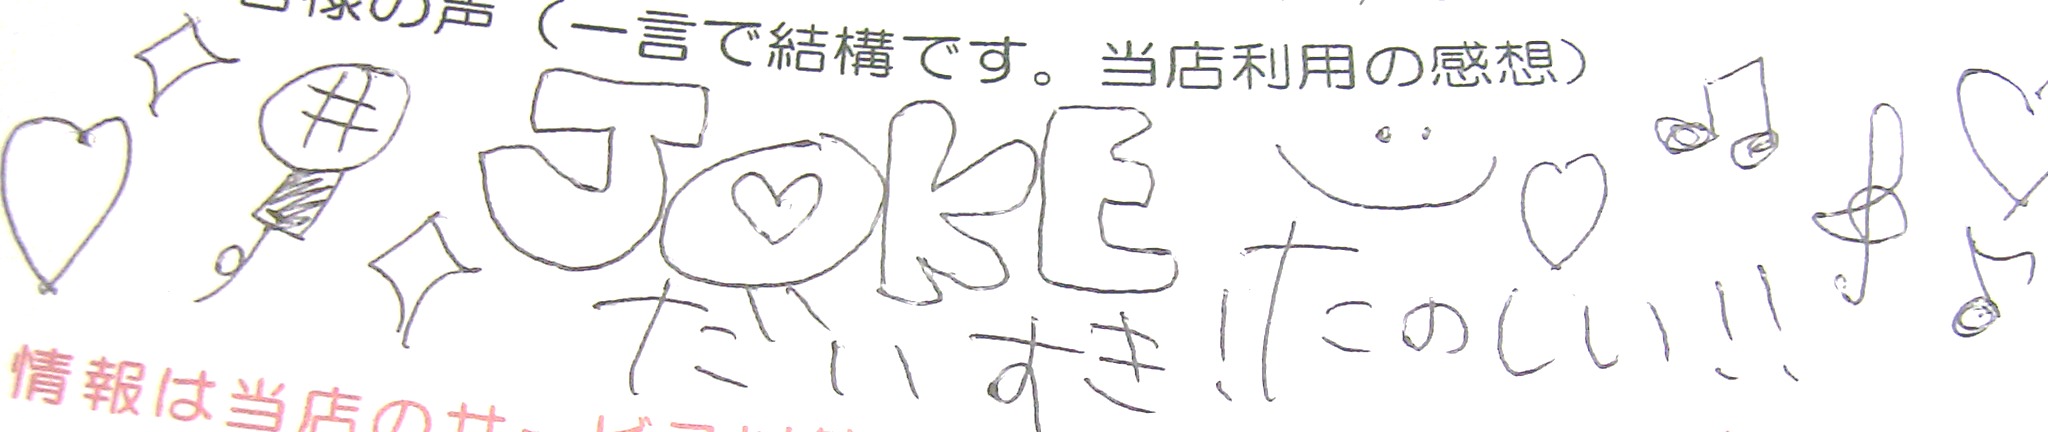 客様の声（一言で結構です。当店利用の感想）
JOKE
だいすき!たのしい!!
情報は当店のサービス